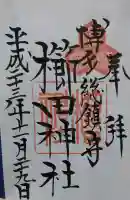 奉拝
博多総鎮守
櫛田神社
平成二十三年十二月 日